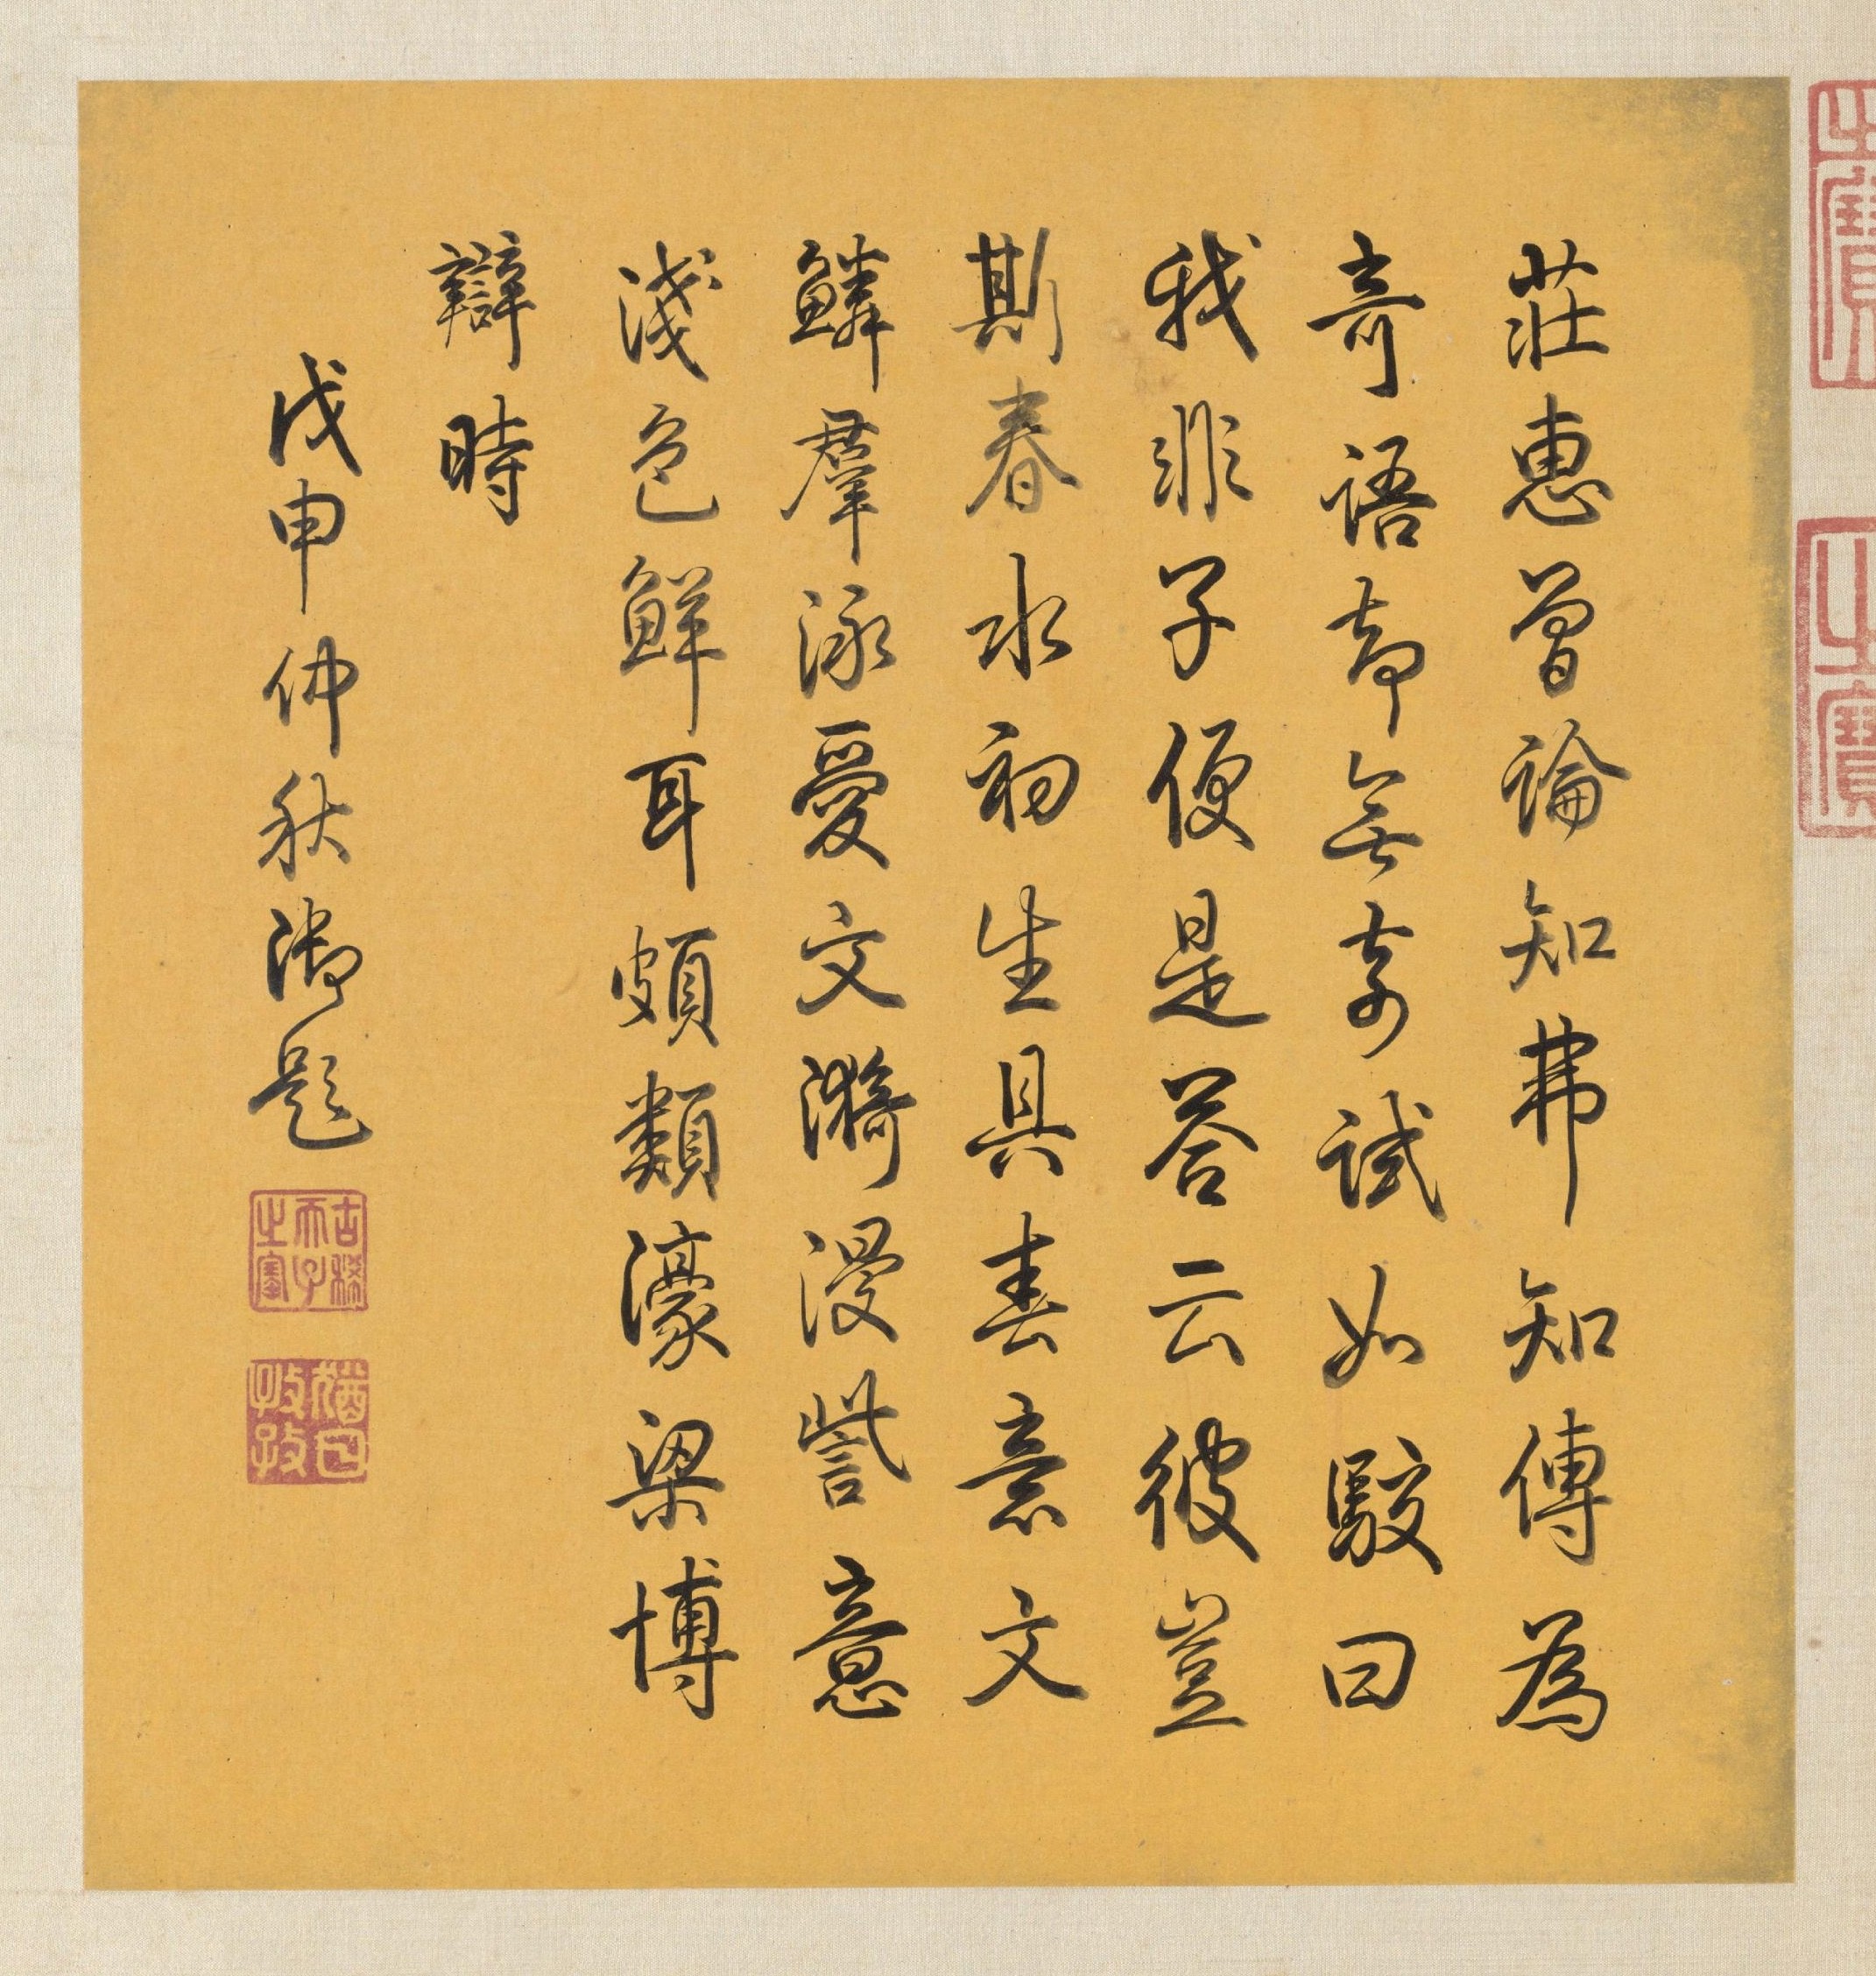 莊惠曾論知弗知傳為
奇語却無奇試如駮曰
我非子便是答云彼豈
斯春水初生具春意文
鱗羣泳愛文漪漫訾意
淺色鮮耳頗類濠梁博
辯時
戊申仲秋御題
古稀天子之寶
猶日孜孜
之寶
之寶